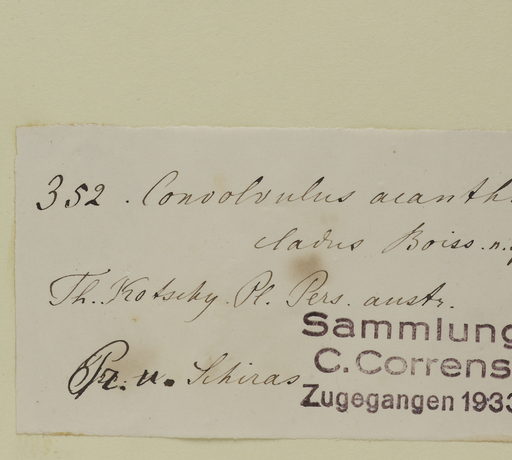 352. Convolvulus acanth
cladus Boiss. n.
Th. Kotschy. Pl. Pers. austr.
Pr. u. Schiras
Sammlung
C. Correns
Zugegangen 1933